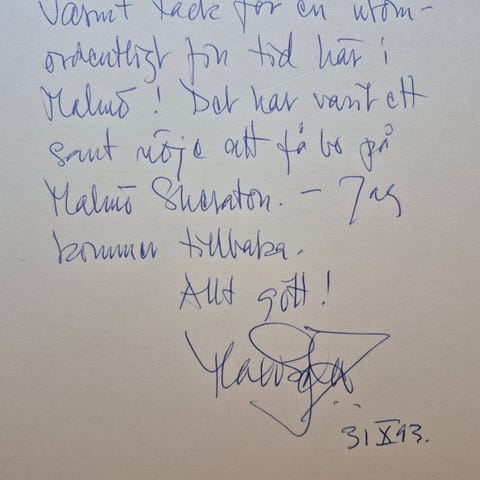 Varmt tack för en utom-
ordentligt fin tid här i
Malmö! Det har varit ett
sant nöje att få bo på
Malmö Sheraton. – Jag
kommer tillbaka.
Allt gott!
31 X 93.